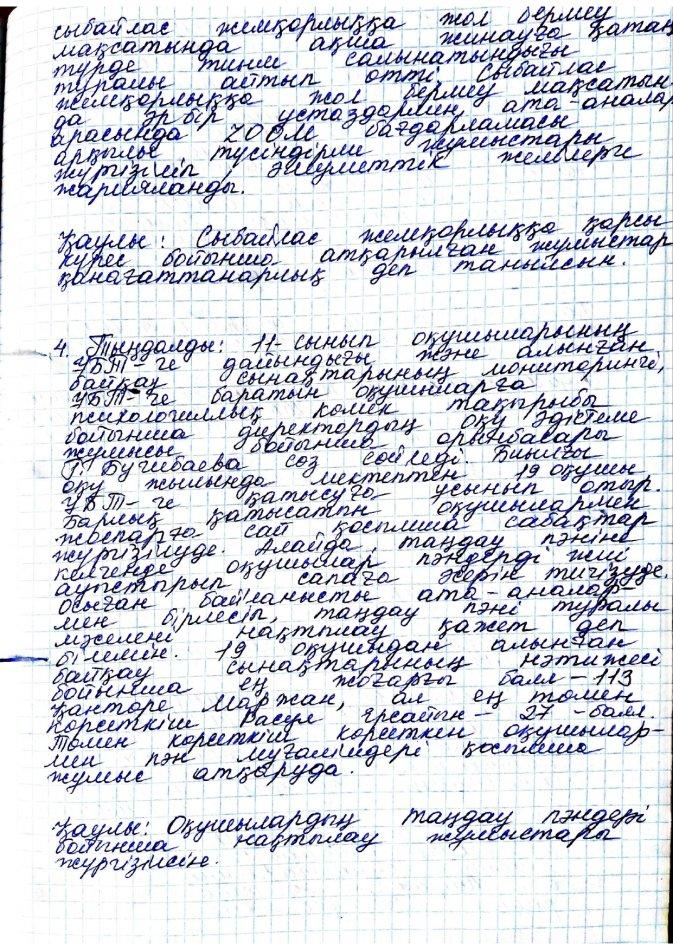 сыбайлас жемқорлыққа жол бермеу
мақсатында ақша жинауға қатаң
түрде тиым салынатындығы
туралы айтып өтті. Сыбайлас
жемқорлыққа жол бермеу мақсатын-
да әрбір ұстаздармен, ата-аналар
арасында ZOOM бағдарламасы
арқылы түсіндірме жұмыстары
жүргізіліп, әлеуметтік желілерге
жарияланды.
Қаулы: Сыбайлас жемқорлыққа қарсы
күрес бойынша атқарылған жұмыстар
қанағаттанарлық деп танылсын.
4. Тыңдалды: 11-сынып оқушыларының
ҰБТ-ге дайындығы және алынған
байқау сынақтарының мониторингі,
ҰБТ-ге баратын оқушыларға
психологиялық көмек тақырыбы
бойынша директордың оқу әдістеме
жұмысы бойынша орынбасары
Бугибаева сөз сөйледі. Биылғы
оқу жылында мектептен 19 оқушы
ҰБТ-ге қатысуға ұсынып отыр.
Барлық қатысатын оқушылармен
жоспарға сай қосымша сабақтар
жүргізілуде. Алайда, таңдау пәніне
келгенде оқушылар пәндерді жиі
ауыстырып сапаға әсерін тигізуде.
Осыған байланысты ата-аналар-
мен бірлесіп, таңдау пәні туралы
мәселені нақтылау қажет деп
білемін. 19 оқушыдан алынған
байқау сынақтарының нәтижесі
бойынша ең жоғарғы балл-113
Қанторе Маржан, ал ең төмен
көрсеткіш Расул Ерсайын-27-балл.
Төмен көрсеткіш көрсеткен оқушылар-
мен пән мұғалімдері қосымша
жұмыс атқаруда.
Қаулы: Оқушылардың таңдау пәндері
бойынша нақтылау жұмыстары
жүргізілсін.